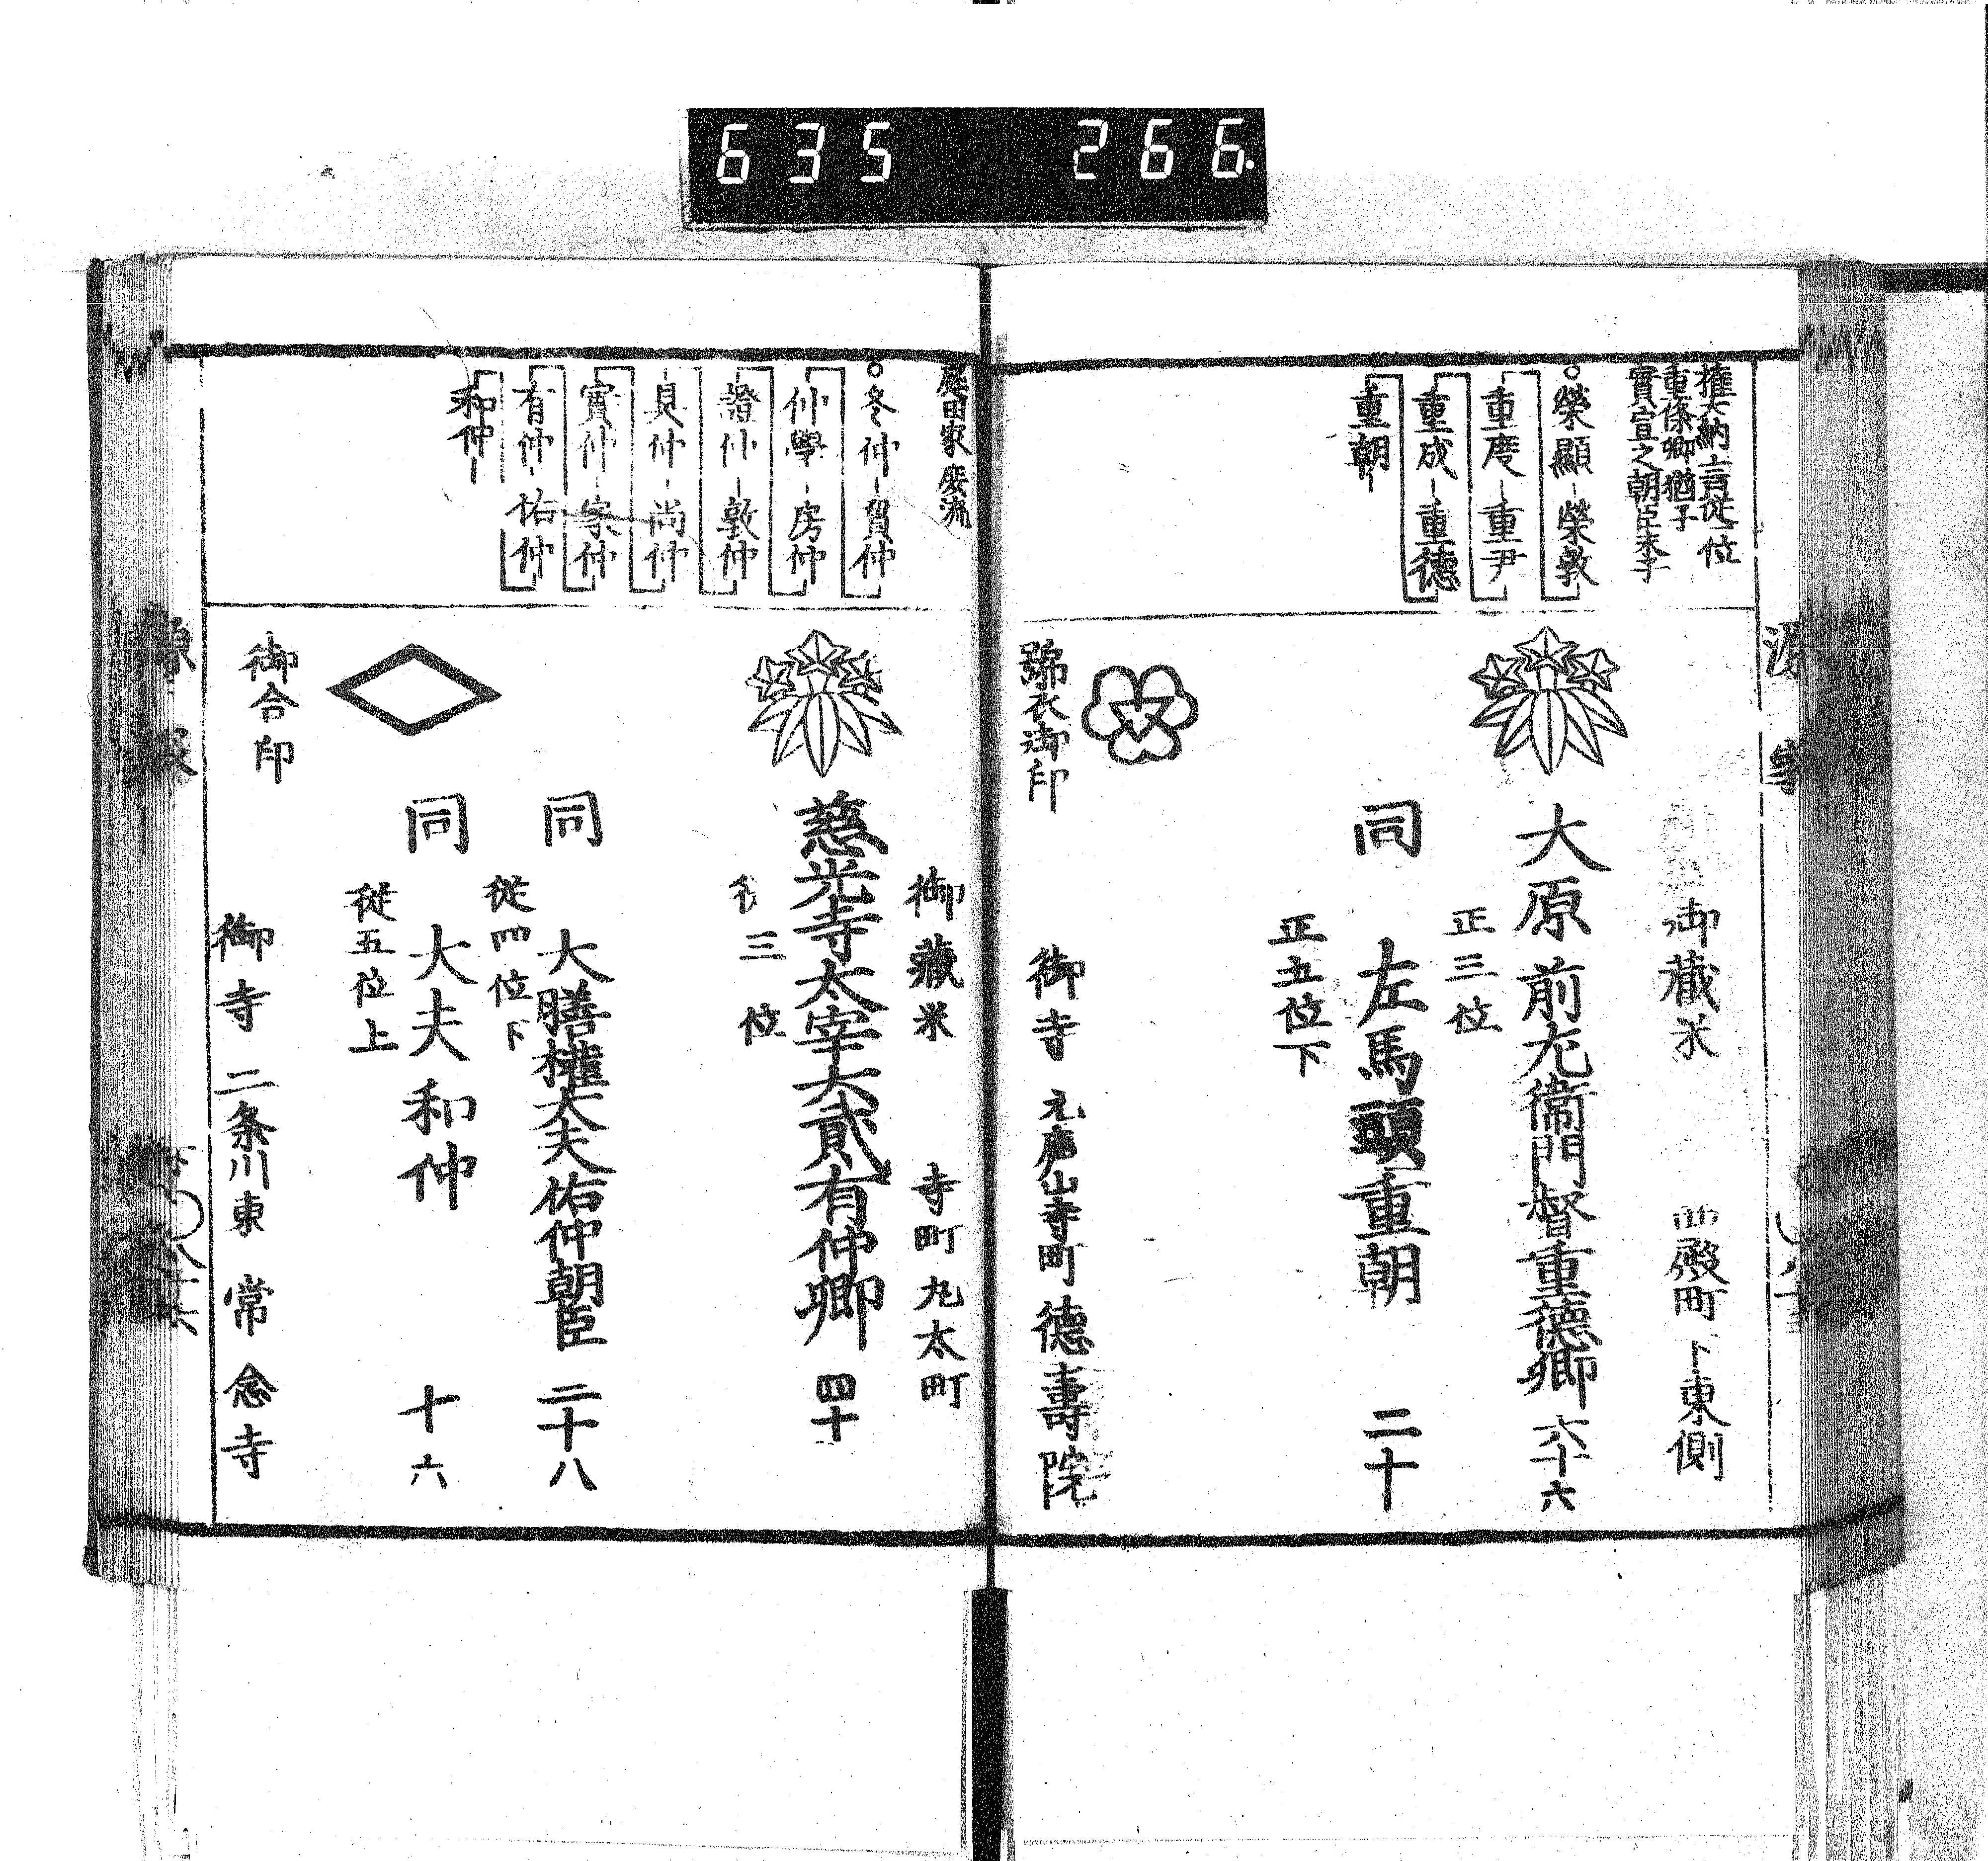 635 266.
源家
權大納言從一位
重條卿猶子
實六宣之朝臣末子
榮顯-榮敦
重度-重尹
重成-重德
重朝-
御藏米 西殿町下東側
大原前左衛門督重德卿 六十六
正三位
同 左馬頭重朝 二十
正五位下
號衣御印
御寺 元廬山寺町 德壽院
庭田家庶流
冬仲-賀仲
仲學-房仲
證仲-敦仲
具仲-尚仲
實仲-家仲
有仲-佑仲
和仲-
御藏米 寺町丸太町
慈光寺太宰大貳有仲卿 四十
三位
同 大膳權大夫佑仲朝臣 二十八
從四位下
同 大夫和仲 十六
從五位上
御合印
御寺 二条川東 常念寺